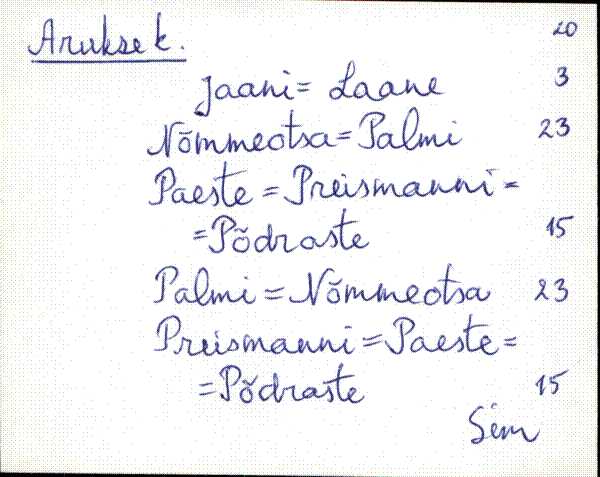 Arukse k. 20
Jaani = Laane 3
Nõmmeotsa = Palmi 23
Paeste = Preismanni =
= Põdraste 15
Palmi = Nõmmeotsa 23
Preismanni = Paeste =
= Põdraste 15
Sim